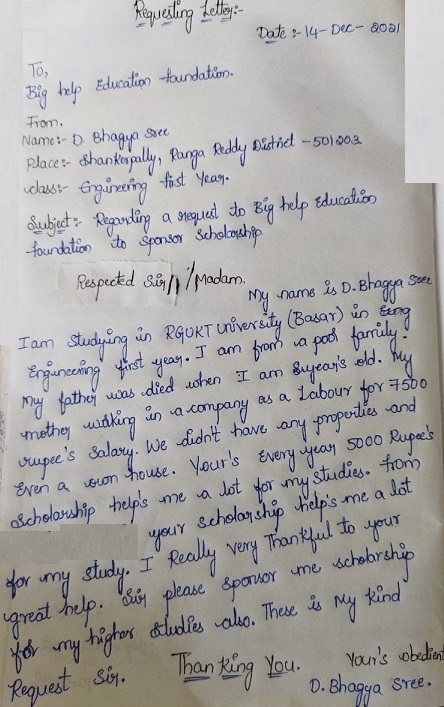 Requesting Letter:-
Date :- 14-Dec-2021
To,
Big help Education foundation.
From.
Name:- D Bhagya Sree
Place:- Shankarpally, Ranga Reddy District -501203
class:- Engineering first Year.
Subject:- Regarding a request to Big help Education
foundation to Sponsor Scholarship.
Respected Sir// /Madam.
My name is D. Bhagya Sree
I am studying in RGUKT University (Basar) in
Engineering first year. I am from a poor family.
My father was died when I am 8year's old. My
mother wrking in a company as a Labour for 7500
rupee's Salary. We didn't have any properties and
Even a own house. Your's Every year 5000 Rupee's
Scholarship help's me a lot for my studies. from
your scholarship help's me a lot
for my study. I Really very Thankful to your
great help. Sir please sponsor me scholarship
for my higher studies also. These is My kind
Request Sir. Thanking You. Your's obedient
D. Bhagya Sree.